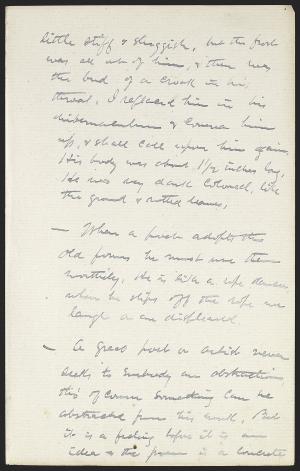 little stiff & sluggish, but the frost
was all out of him, & there was
the bud of a croak in his
throat. I replaced him in his
hibernaculum & covered him
up, & shall call upon him again.
His body was about 1 1/2 inches long.
He was very dark colored, like
the ground & rotted leaves.
— When a poet adopts the
old forms he must use them
worthily. He is like a rope dancer,
when he slips off the rope we
laugh or are displeased.
— A great poet or artist never
seeks to embody an abstraction,
tho' of course something can be
abstracted from his work. But
it is a feeling before it is an
idea & the poem is a concrete